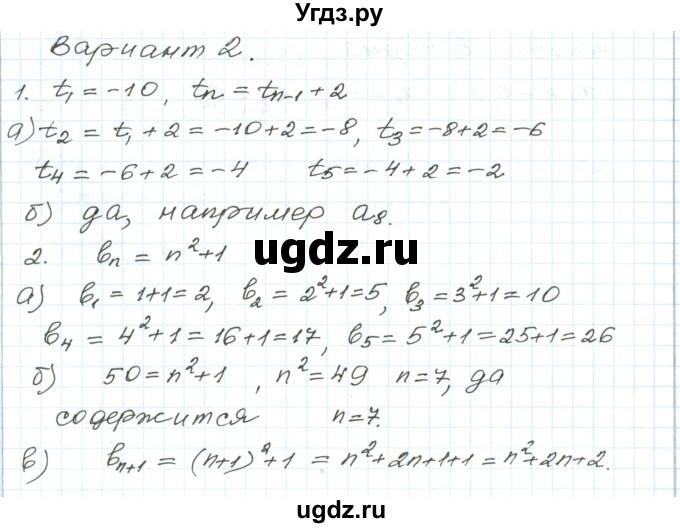 Угдз.ру
Вариант 2.
1. t₁ = -10, tₙ = tₙ₋₁ + 2
а) t₂ = t₁ + 2 = -10+2 = -8, t₃ = -8+2 = -6
t₄ = -6+2 = -4 t₅ = -4+2 = -2
б) да, например а₈.
2. вₙ = n²+1
а) в₁ = 1+1=2, в₂ = 2²+1=5, в₃ = 3²+1 = 10
в₄ = 4²+1 = 16+1=17, в₅ = 5²+1 = 25+1 = 26
б) 50 = n²+1, n² = 49 n=7, да
содержится n=7.
в) вₙ₊₁ = (n+1)²+1 = n²+2n+1+1 = n²+2n+2.
ugdz.ru
ugdz.ru
ugdz.ru